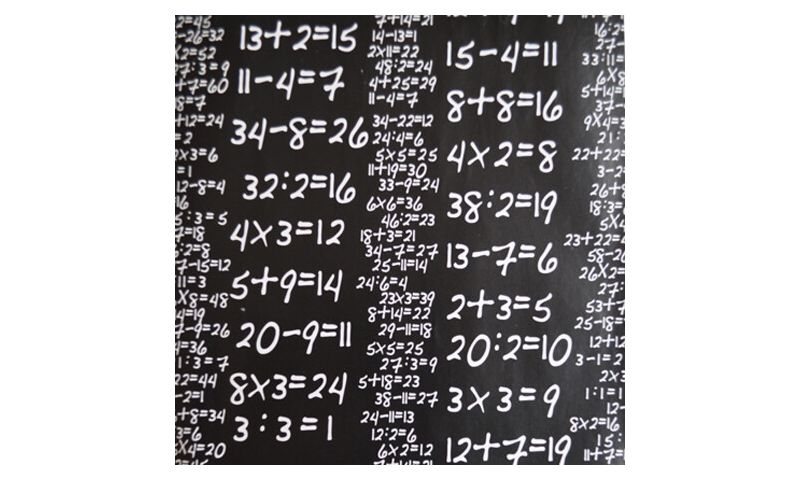 -26=32
2=52
7:3=9
+7=60
8=7
+12=24
=2
x3=6
=1
12-8=4
16
5:3=5
=18
:2=8
7-15=12
11=3
x8=48
=19
7-9=26
=36
1:3=7
22=44
-2=1
+8=34
3=6
x4=20
13+2=15
11-4=7
34-8=26
32:2=16
4x3=12
5+9=14
20-9=11
8x3=24
3:3=1
7+14=21
14-13=1
2x11=22
48:2=24
4+25=29
11-4=7
34-22=12
24:4=6
5x5=25
11+19=30
33-9=24
6x6=36
46:2=23
18+3=21
34-7=27
25-11=14
24:6=4
23x3=39
8+14=22
29-11=18
5x5=25
27:3=9
5+18=23
38-11=27
24-11=13
12:2=6
6x2=12
7+14=21
15-4=11
8+8=16
4x2=8
38:2=19
13-7=6
2+3=5
20:2=10
3x3=9
12+7=19
16:2=
27-
33:11=
6x8
5+14=1
37-
9x4=3
21:
22+22=
3-2=
26+8
18:3=
5x
23+22=4
58-26
26x2=
27:
53+7
25-18=
12+12
3-1=2
2x3
1:1=1
12-
8x2=16
15:
11+7=